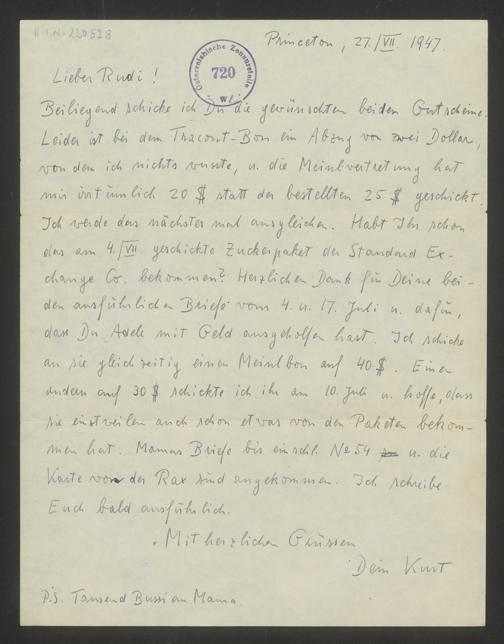 H.I.N. 230528
Princeton, 27./VII. 1947.
Österreichische Zensurstelle
720
W
Lieber Rudi!
Beiliegend schicke ich Dir die gewünschten beiden Gutscheine.
Leider ist bei dem Bon ein Abzug von zwei Dollar,
von dem ich nichts wusste, u. die Meinlvertretung hat
mir irrtümlich 20 $ statt der bestellten 25 $ geschickt.
Ich werde das nächstes mal ausgleichen. Habt Ihr schon
das am 4./VII. geschickte Zuckerpaket der Standard Ex-
change Co. bekommen? Herzlichen Dank für Deine bei-
den ausführlichen Briefe vom 4. u. 17. Juli u. dafür,
dass Du Adele mit Geld ausgeholfen hast. Ich schicke
an sie gleichzeitig einen Meinlbon auf 40 $. Einen
andern auf 30 $ schickte ich ihr am 10. Juli u. hoffe, dass
sie einstweilen auch schon etwas von den Paketen bekom-
men hat. Mamas Briefe bis einschl. No 54 u. die
Karte von der Rax sind angekommen. Ich schreibe
Euch bald ausführlich.
Mit herzlichen Grüssen
Dein Kurt
P.S. Tausend Bussi an Mama.